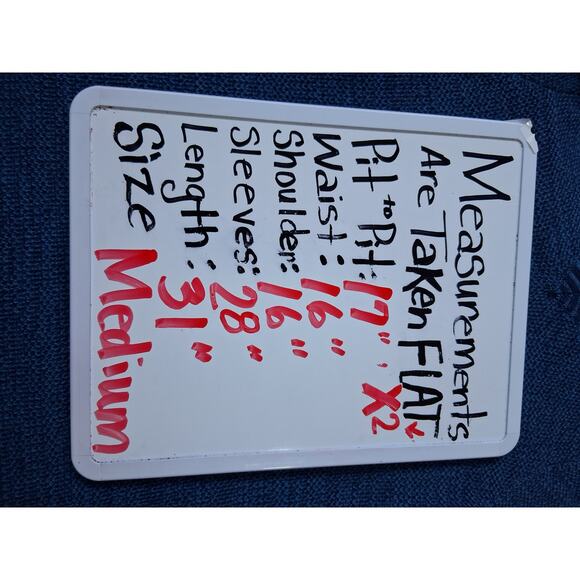 Measurements
Are Taken FLAT
Pit to Pit: 17" x2
Waist: 16"
Shoulder: 16"
Sleeves: 28"
Length: 31"
Size Medium